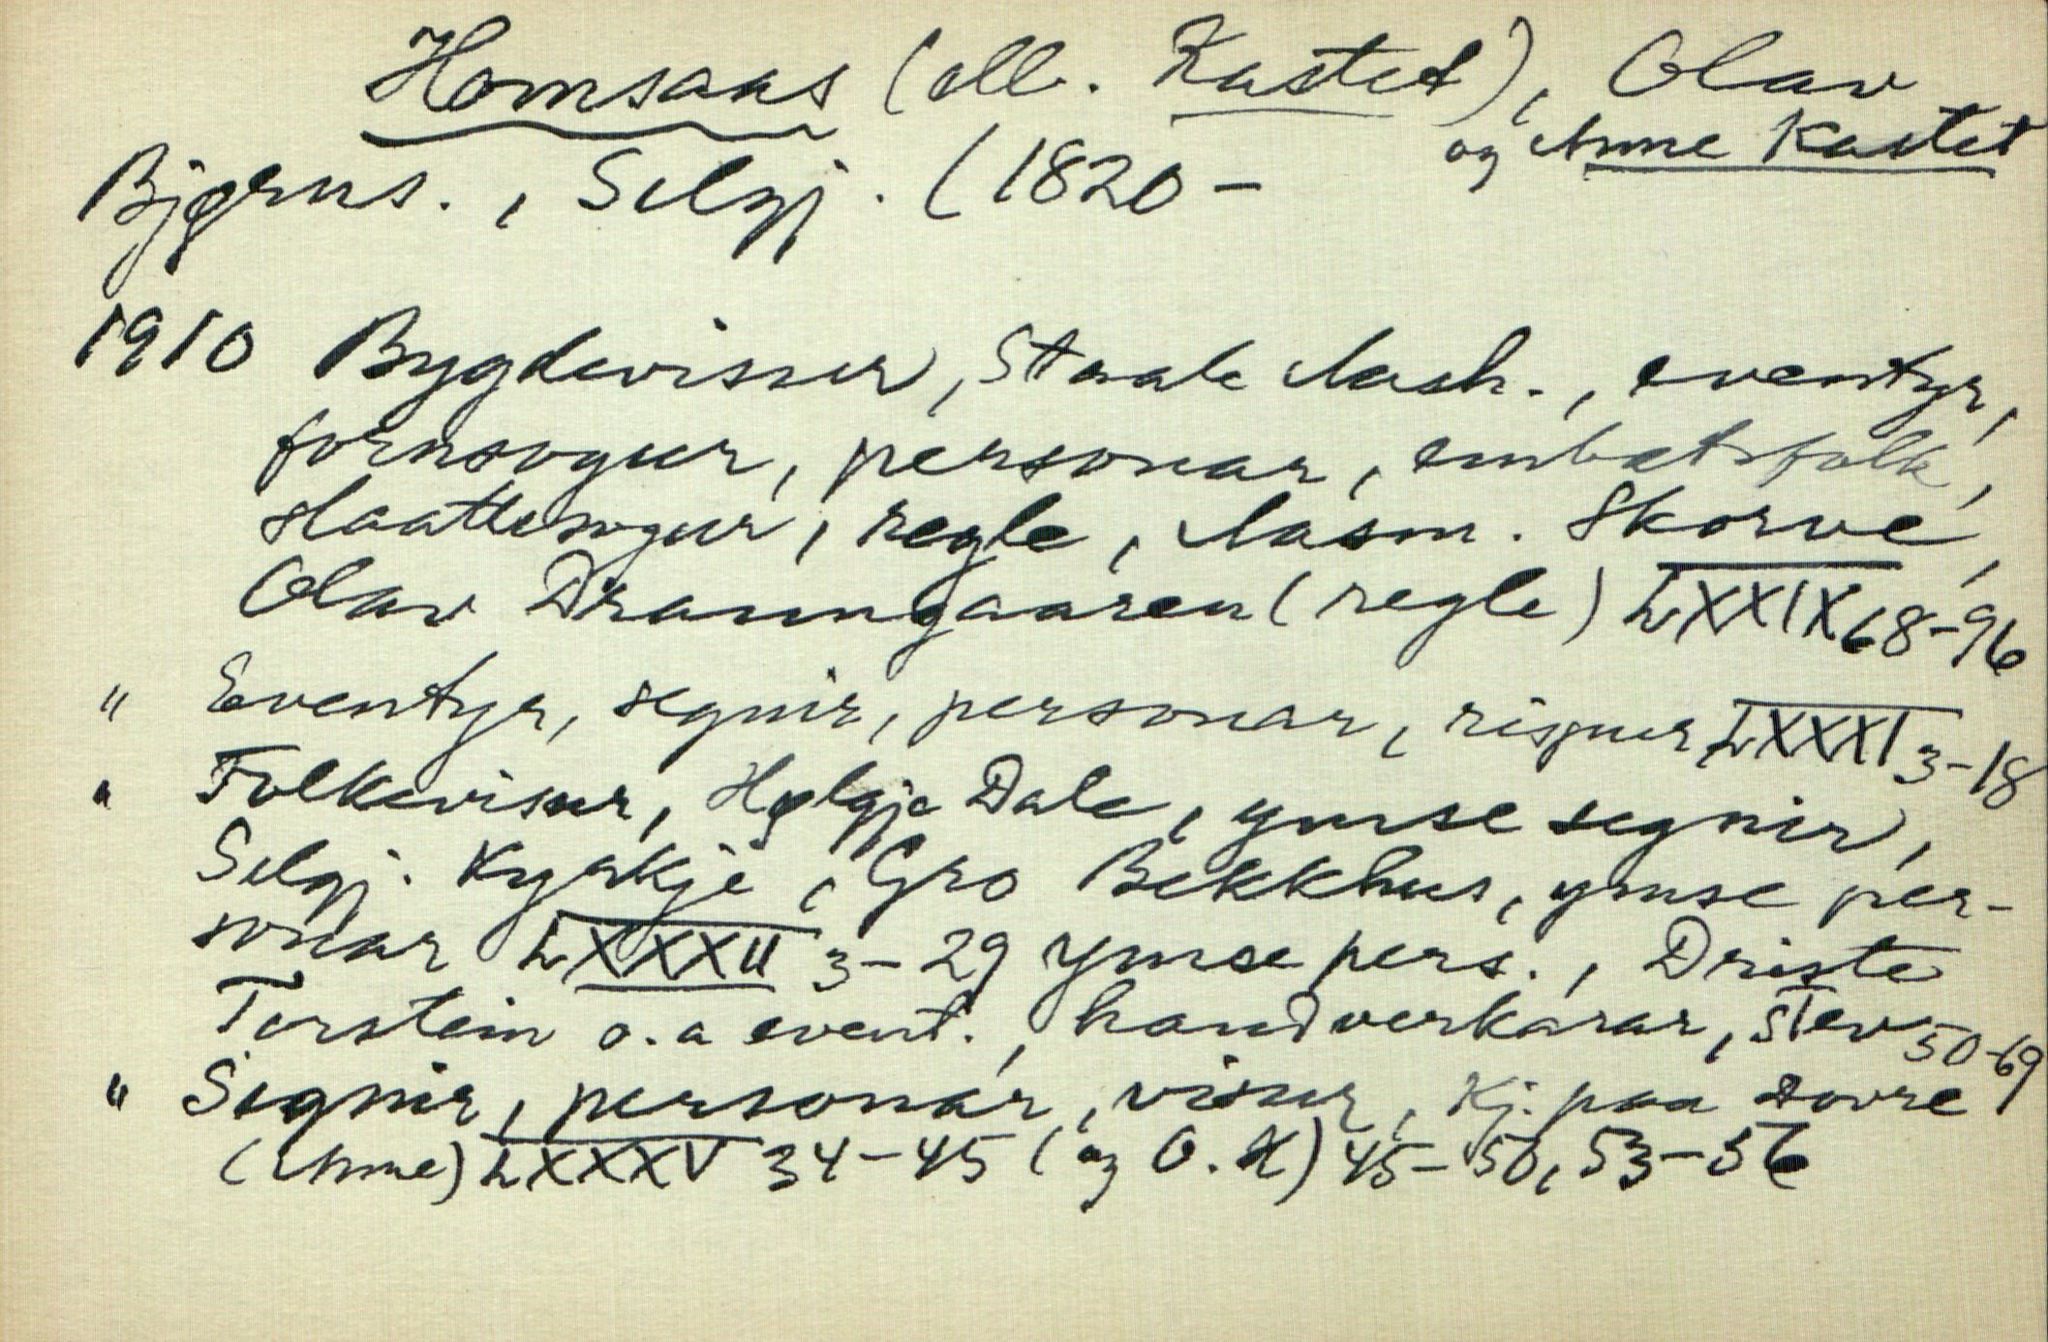 Homsaas (ell. Kastet), Olav
og Anne Kastet
Bjørns., Selgj. (1820 –
1910 Bygdevisur, Staale Aash., eventyr,
fornsogur, personar, embætsfolk,
slaattesogur, regle, Aasm. Skorve,
Olav Draumgaaren (regle) LXXIX 68-96
" Eventyr, segnir, personar, rispur LXXXI 3-18
" Folkevisur, Hølgje Dale, ymse segnir,
Selgj. Kyrkje, Gro Bekkhus, ymse per-
sonar LXXXII 3-29 ymse pers., Driste
Torstein o.a event., handverkarar, stev 50-69
" Segnir, personar, visur, Kj. paa Dovre
(Anne) LXXXV 34-45 (og O.K) 45-50, 53-56